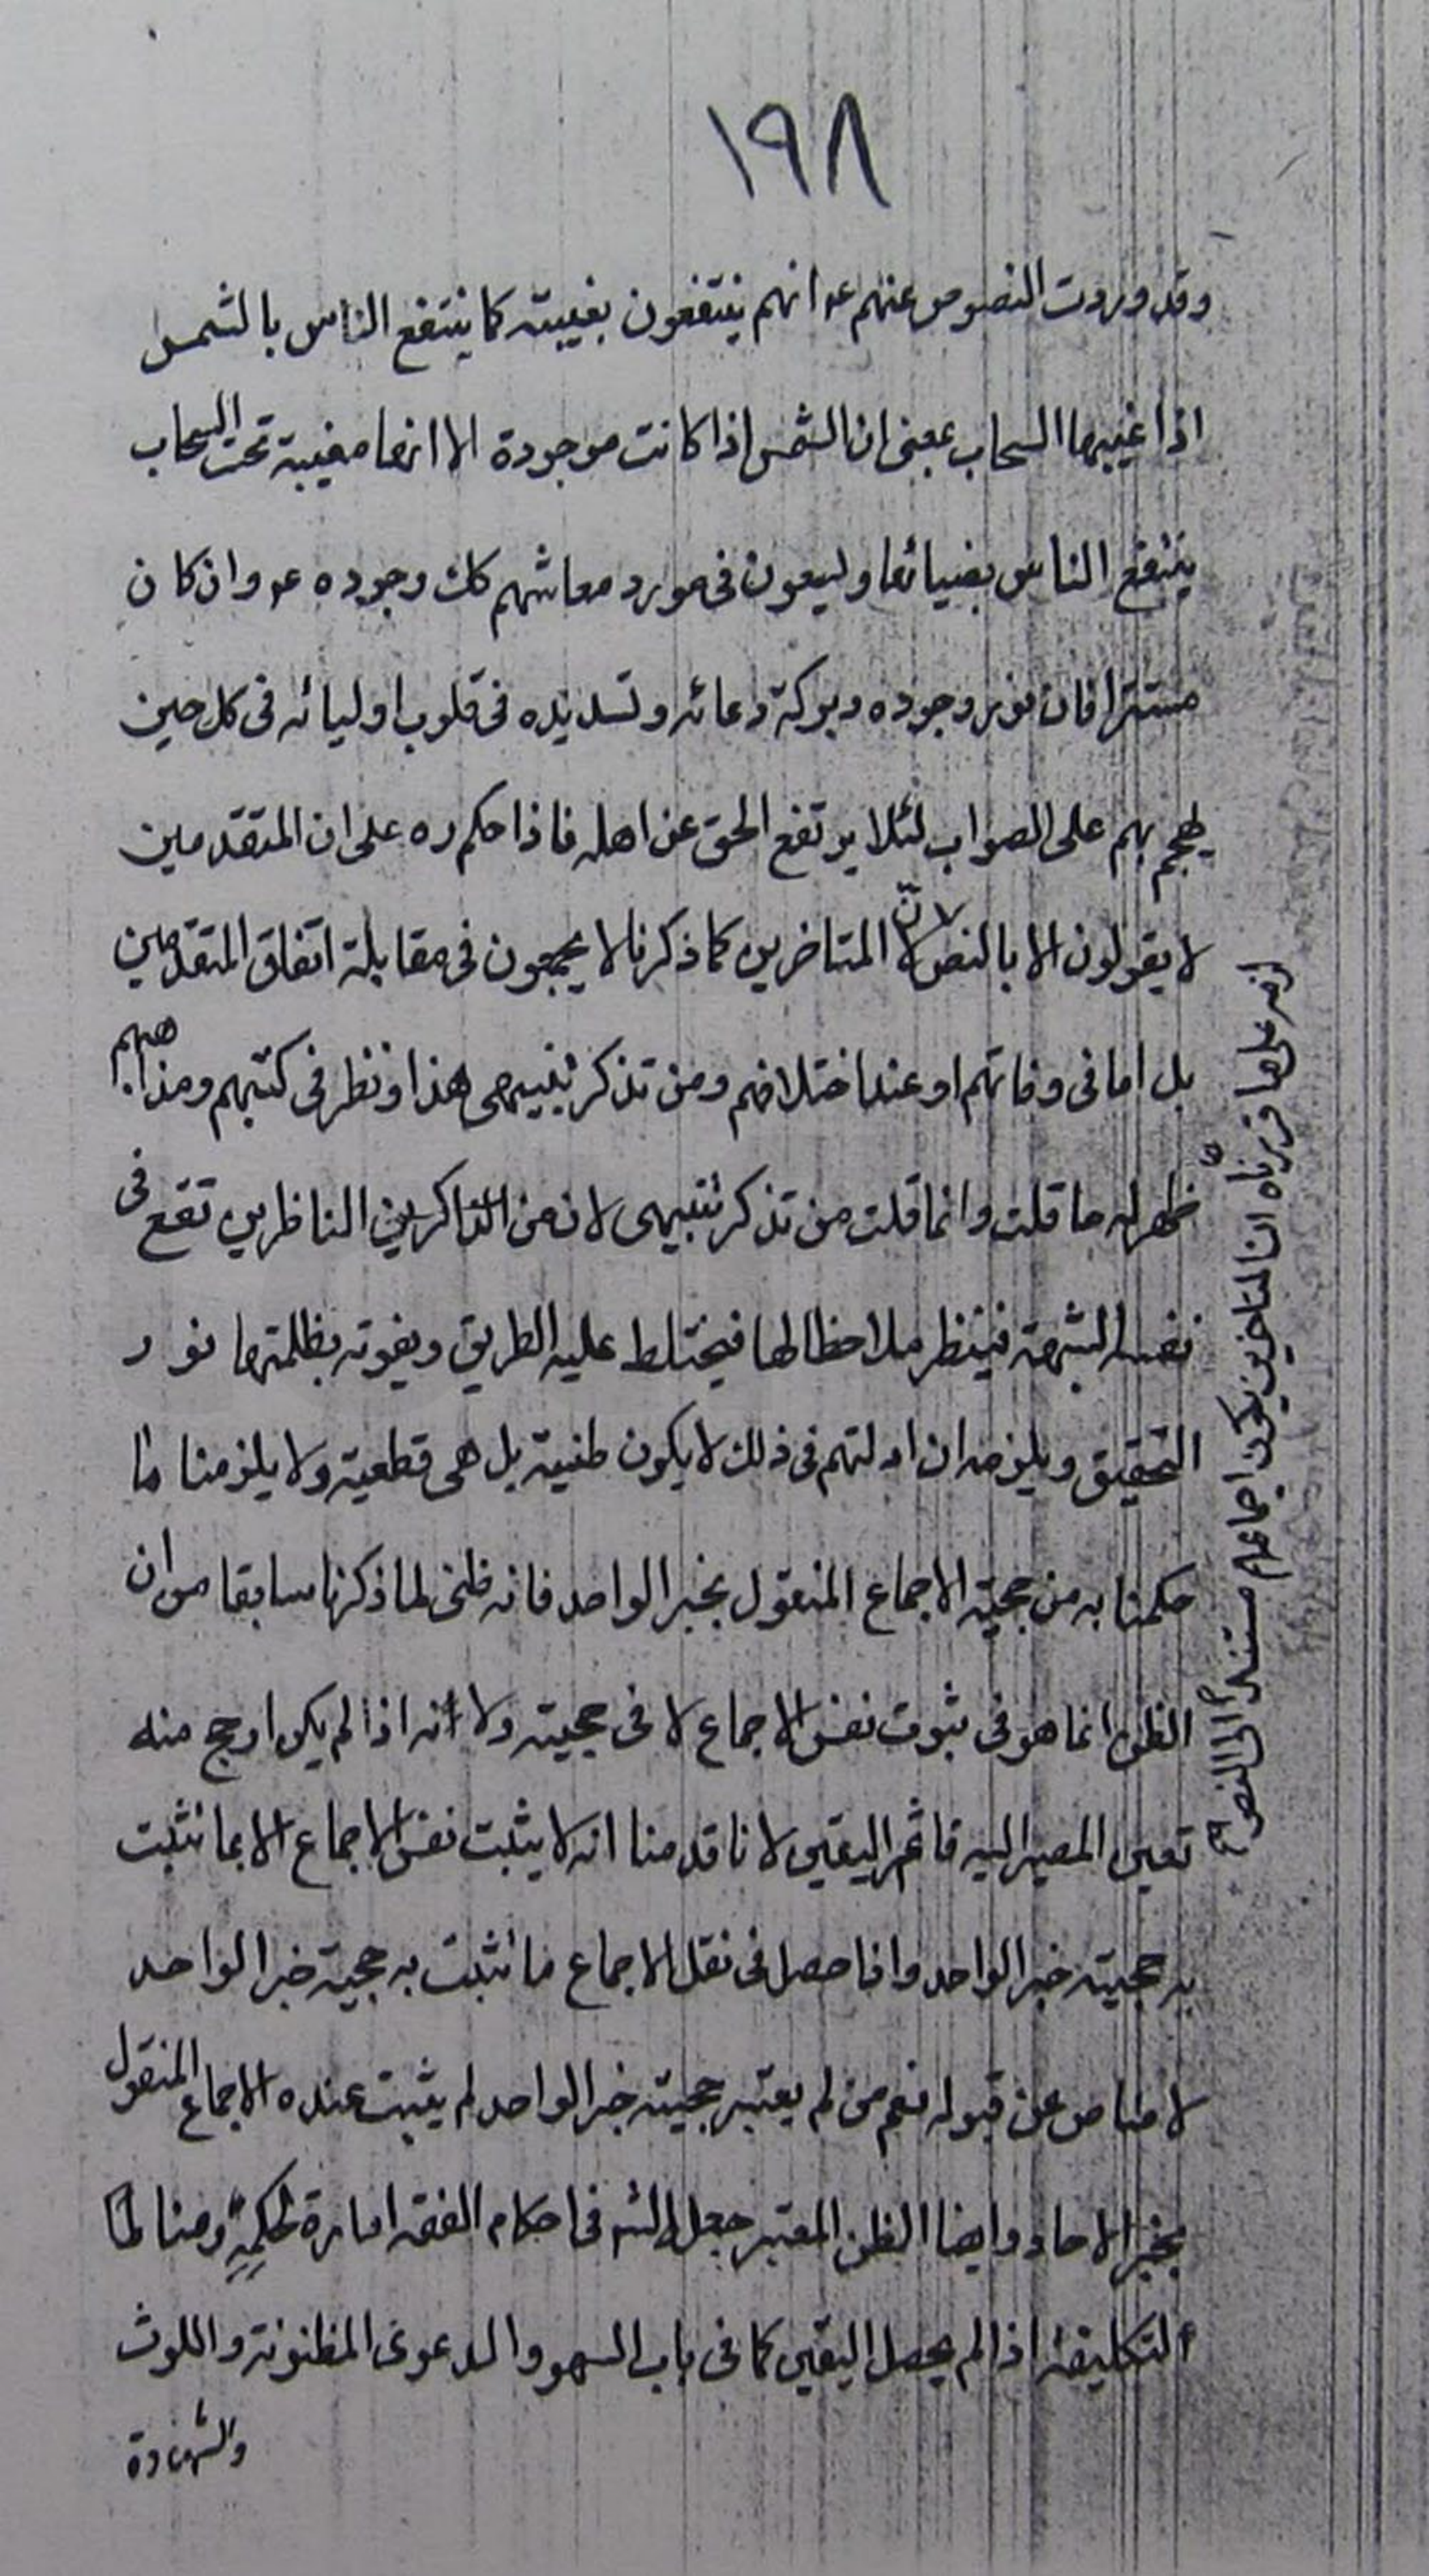 ١٩٨
وقد وردت النصوص عنهم ع انهم ينتفعون بغيبته كما ينتفع الناس بالشمس
اذا غيبها السحاب بمعنى ان الشمس اذا كانت موجودة الا انها مغيبة تحت السحاب
ينتفع الناس بضيائها وليعون فى مورد معاشهم كك وجوده ع وان كان
مستترا فان نور وجوده وبركة دعائه وتسديده فى قلوب اوليائه فى كل حين
يهجم بهم على الصواب لئلا يرتفع الحق عن اهله فاذا حكم ره على ان المتقدمين
لا يقولون الا بالنص لانّ المتاخرين كما ذكرنا لا يجمعون فى مقابلة اتفاق المتقدمين
بل اما فى وفاتهم او عند اختلافهم ومن تذكر تنبيهى هذا ونظر فى كتبهم ومذاهبهم
ظهر له ما قلت وانما قلت من تذكر تنبيهى لان من الذاكرين الناظرين تقع فى
نفسه الشبهة فينظر ملاحظا لها فيختلط عليه الطريق ويفوته بظلمتها نور
التحقيق ويلزمه ان ادلتهم فى ذلك لا يكون ظنية بل هى قطعية ولا يلزمنا ما
حكمنا به من حجية الاجماع المنقول بخبر الواحد فانه ظنى لما ذكرنا سابقا من ان
الظن انما هو فى ثبوت نفس الاجماع لا فى حجيته ولا انه اذا لم يكن ارجح منه
تعين المصير اليه قائم اليقين لانا قدمنا انه لا يثبت نفس الاجماع الا بما تثبت
به حجية خبر الواحد واذا حصل فى نقل الاجماع ما تثبت به حجية خبر الواحد
لا مناص عن قبوله نعم من لم يعتبر حجية خبر الواحد لم يثبت عنده الاجماع المنقول
بخبر الاحاد وايضا الظن المعتبر جعله الشه فى احكام الفقه امارة لحكمه ومناطا
لتكليفه اذا لم يحصل اليقين كما فى باب السهو والدعوى المظنونة واللوث
والشهادة
لزمه على ما قررناه ان المتاخرين يكون اجماعهم مستندا الى النصوص